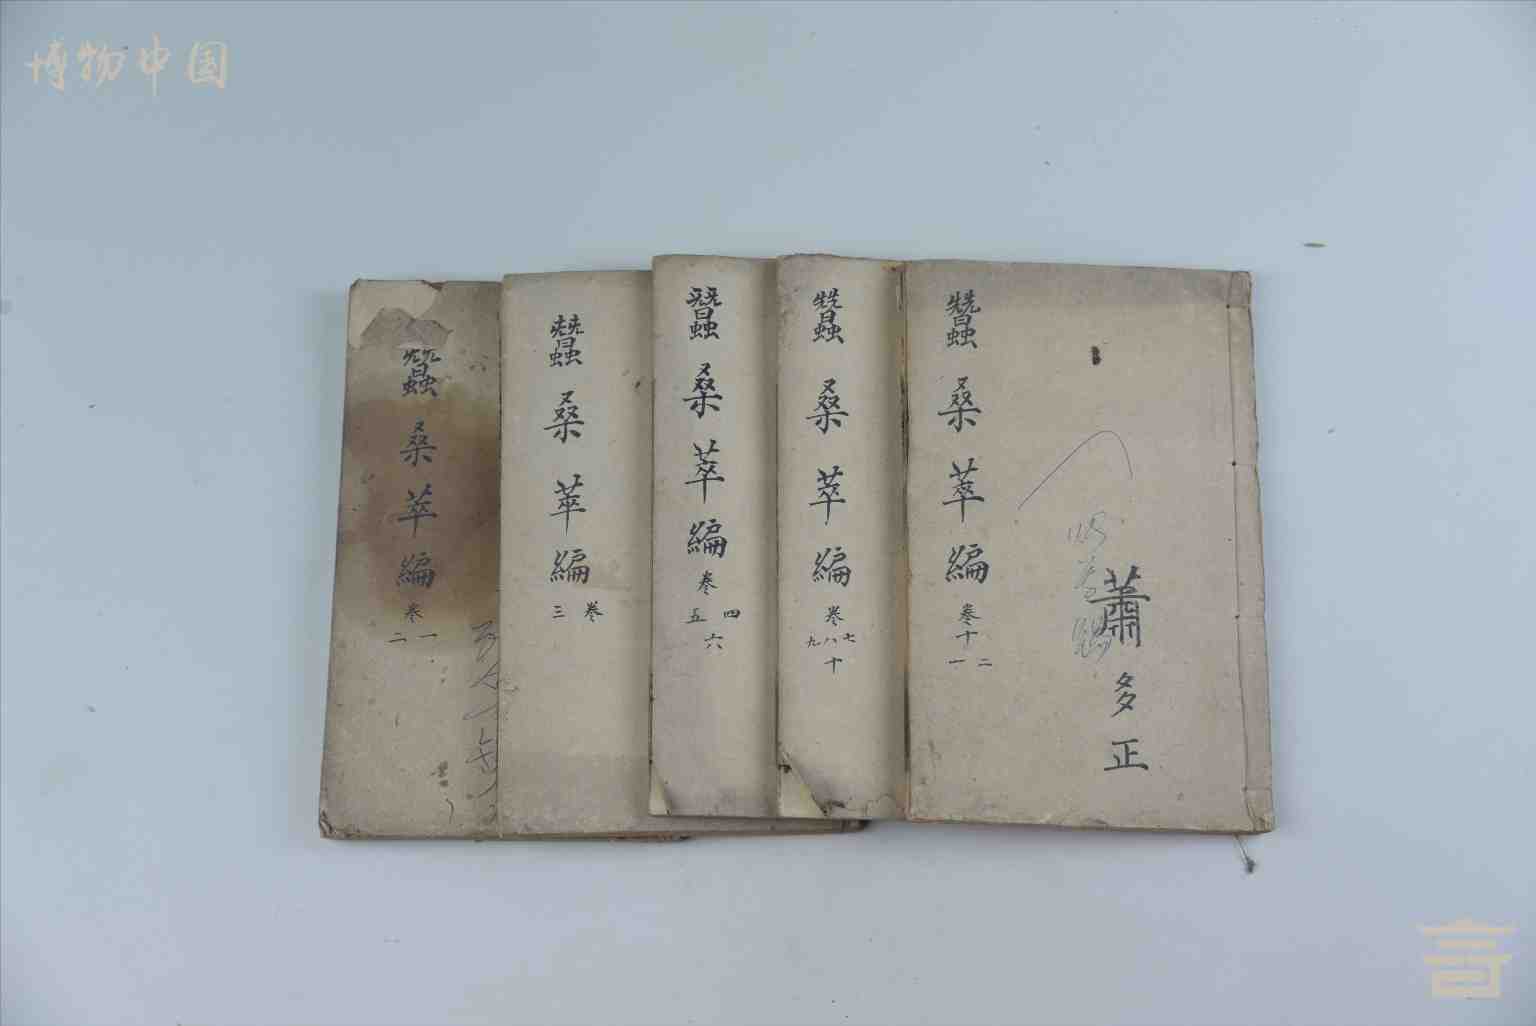 博物中国
蠶桑萃編
卷十
二
一
蕭多正
蠶桑萃編
卷
七八九
十
蠶桑萃編
卷
四五
六
蠶桑萃編
卷三
蠶桑萃編
卷
一二